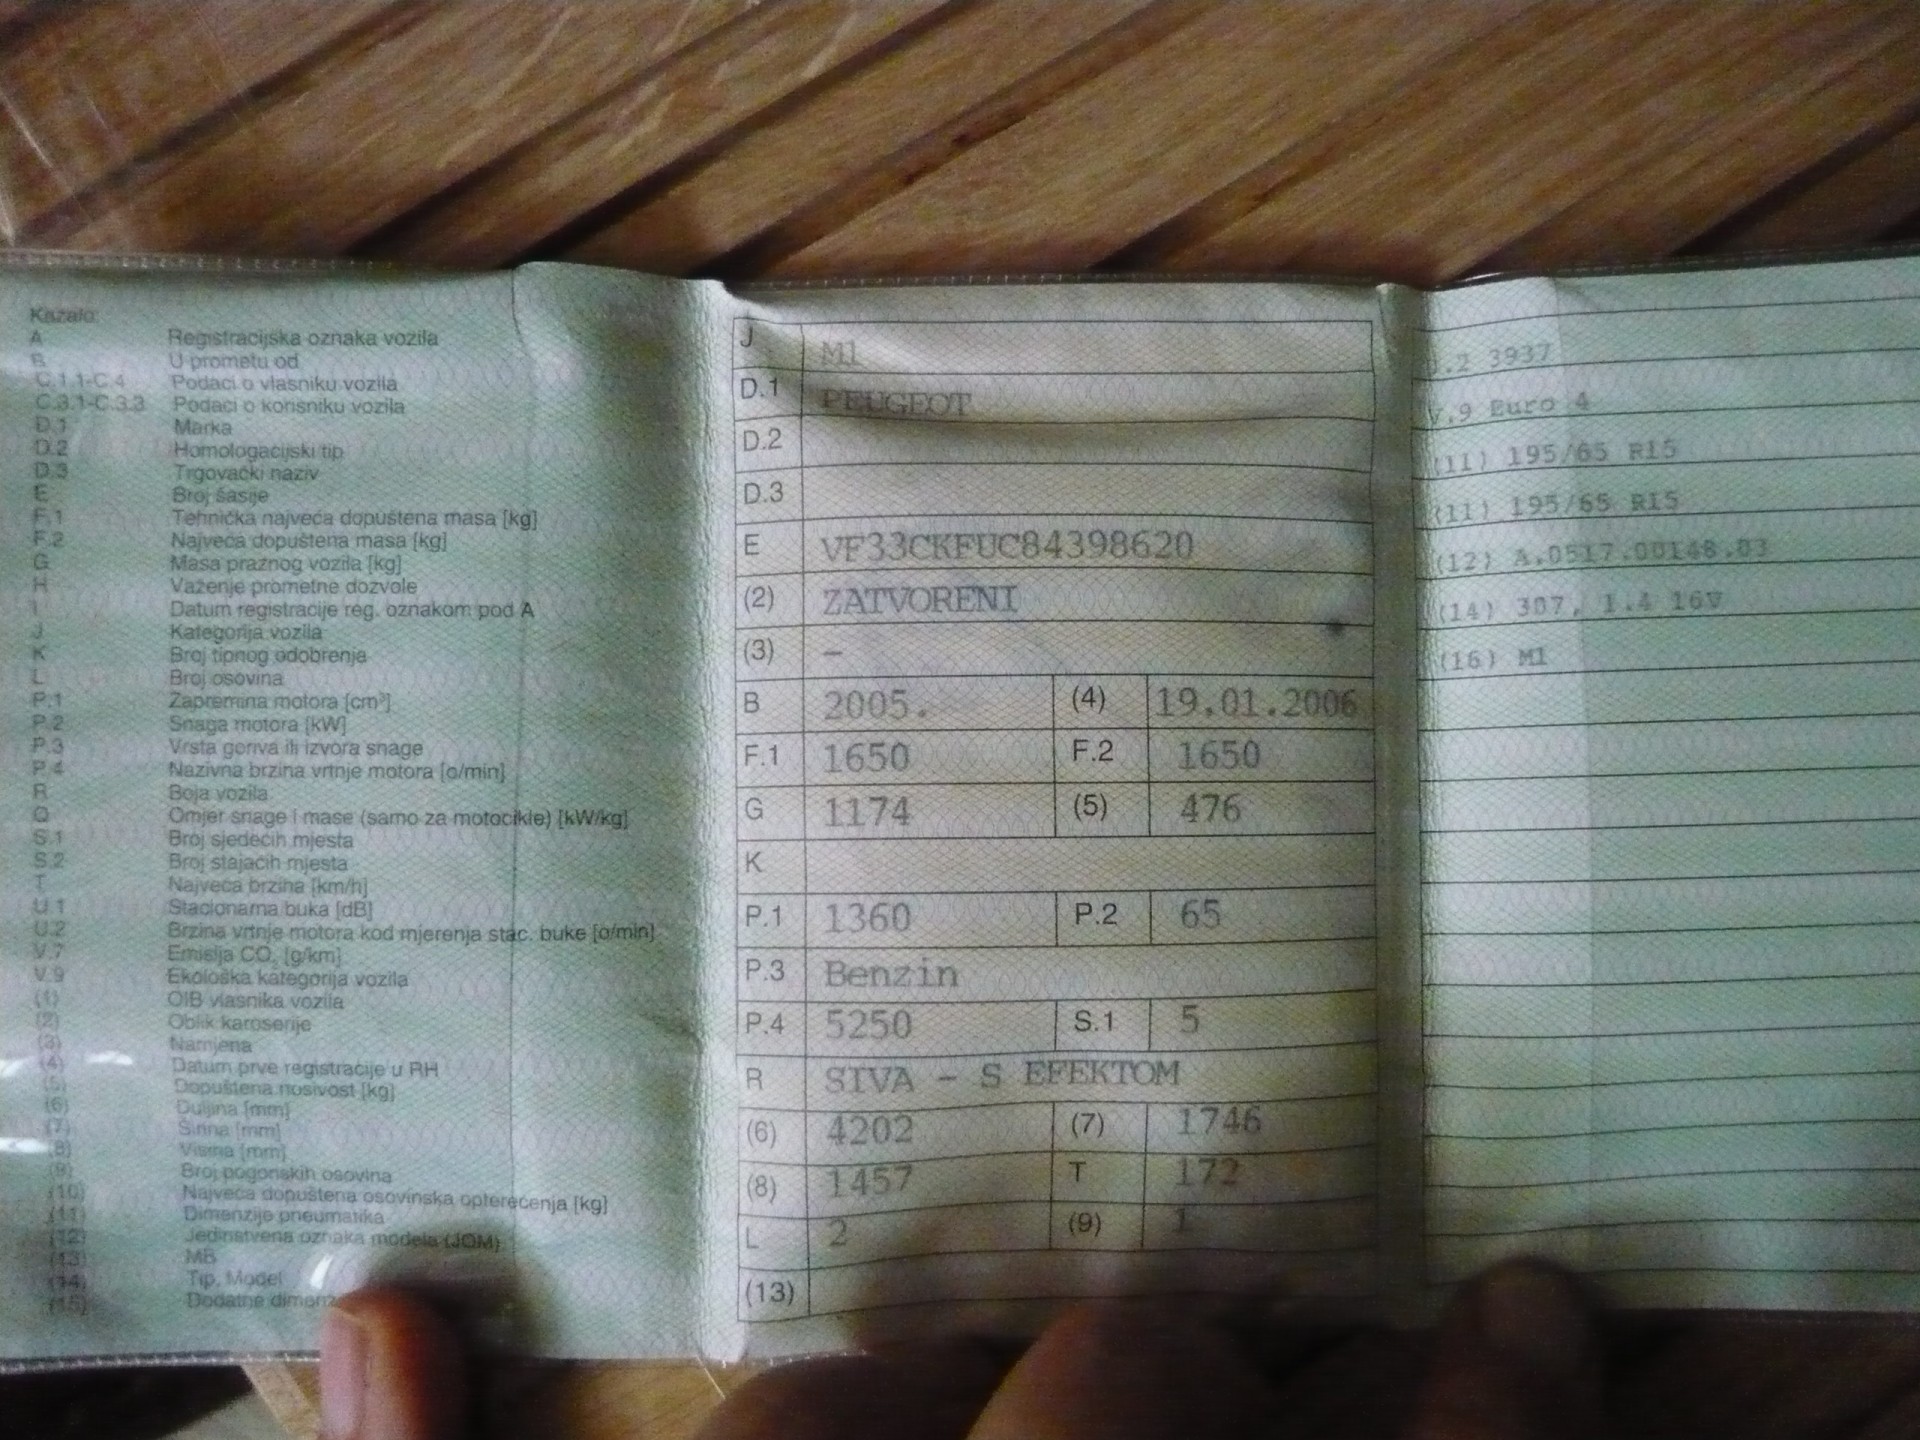 Kazalo:
A Registracijska oznaka vozila
B U prometu od
C.1.1-C.4 Podaci o vlasniku vozila
C.3.1-C.3.3 Podaci o korisniku vozila
D.1 Marka
D.2 Homologacijski tip
D.3 Trgovački naziv
E Broj šasije
F.1 Tehnička najveća dopuštena masa [kg]
F.2 Najveća dopuštena masa [kg]
G Masa praznog vozila [kg]
H Važenje prometne dozvole
I Datum registracije reg. oznakom pod A
J Kategorija vozila
K Broj tipnog odobrenja
L Broj osovina
P.1 Zapremina motora [cm³]
P.2 Snaga motora [kW]
P.3 Vrsta goriva ili izvora snage
P.4 Nazivna brzina vrtnje motora [o/min]
R Boja vozila
Q Omjer snage i mase (samo za motocikle) [kW/kg]
S.1 Broj sjedećih mjesta
S.2 Broj stajaćih mjesta
T Najveća brzina [km/h]
U.1 Stacionarna buka [dB]
U.2 Brzina vrtnje motora kod mjerenja stac. buke [o/min]
V.7 Emisija CO₂ [g/km]
V.9 Ekološka kategorija vozila
(1) OIB vlasnika vozila
(2) Oblik karoserije
(3) Namjena
(4) Datum prve registracije u RH
(5) Dopuštena nosivost [kg]
(6) Duljina [mm]
(7) Širina [mm]
(8) Visina [mm]
(9) Broj pogonskih osovina
(10) Najveća dopuštena osovinska opterećenja [kg]
(11) Dimenzije pneumatika
(12) Jedinstvena oznaka modela (JOM)
(13) MB
(14) Tip, Model
(15) Dodatne
J M1
D.1 PEUGEOT
D.2
D.3
E VF33CKFUC84398620
(2) ZATVORENI
(3) –
B 2005. (4) 19.01.2006
F.1 1650 F.2 1650
G 1174 (5) 476
K
P.1 1360 P.2 65
P.3 Benzin
P.4 5250 S.1 5
R SIVA - S EFEKTOM
(6) 4202 (7) 1746
(8) 1457 T 172
L 2 (9) 1
(13)
.2 3937
V.9 Euro 4
(11) 195/65 R15
(11) 195/65 R15
(12) A.0517.00148.03
(14) 307, 1.4 16V
(16) M1